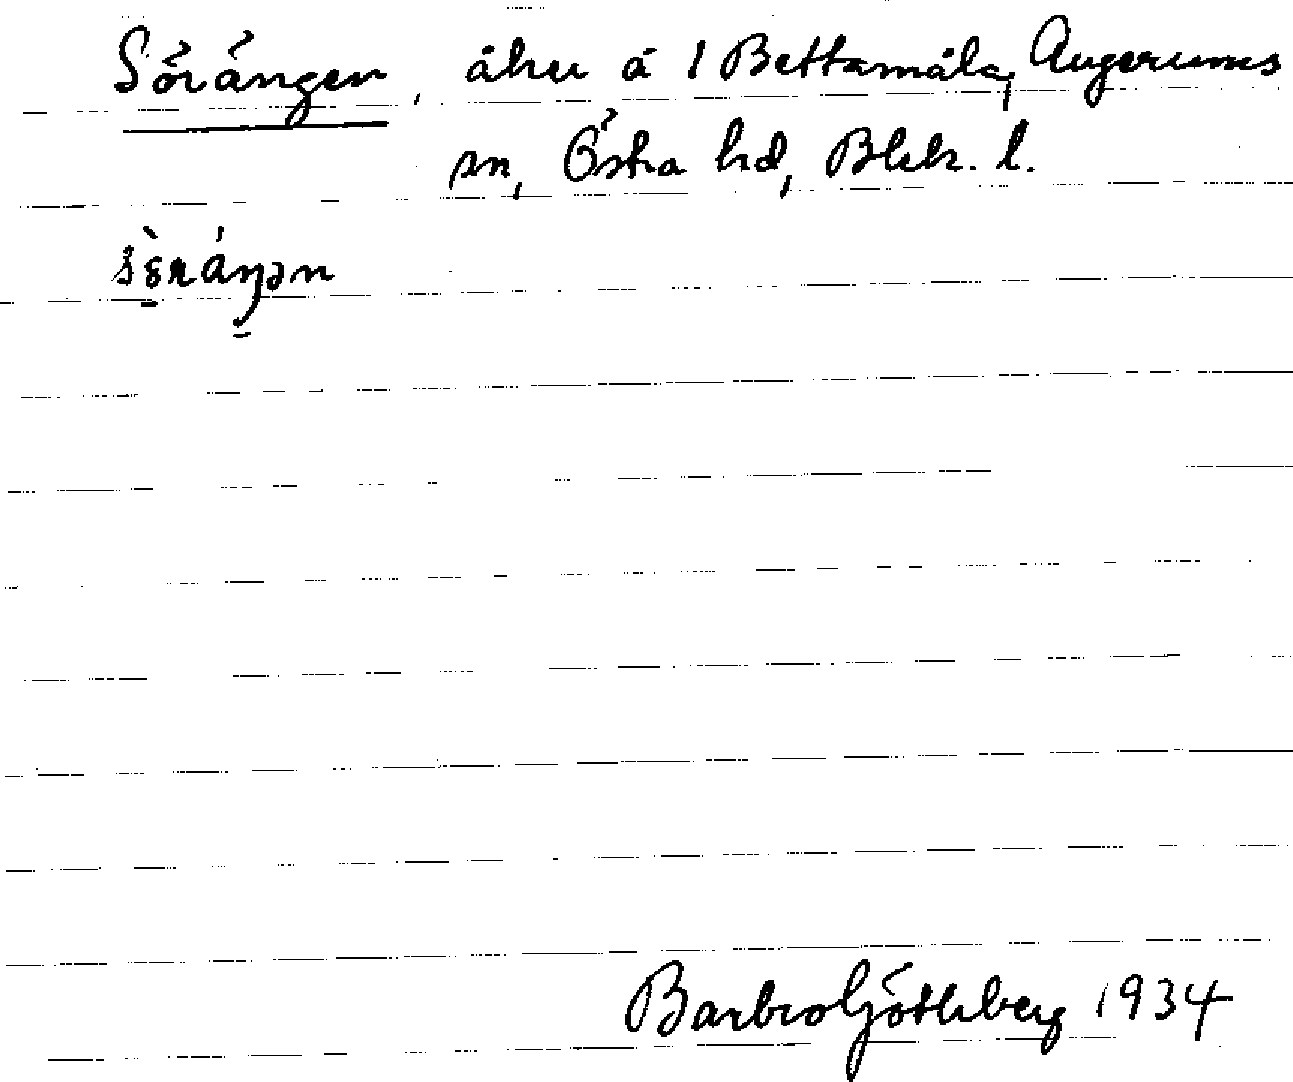 Sörängen, åker å 1 Bettamåla, Augerums
sn, Östra hd, Blek. l.
Barbro Götlberg 1934